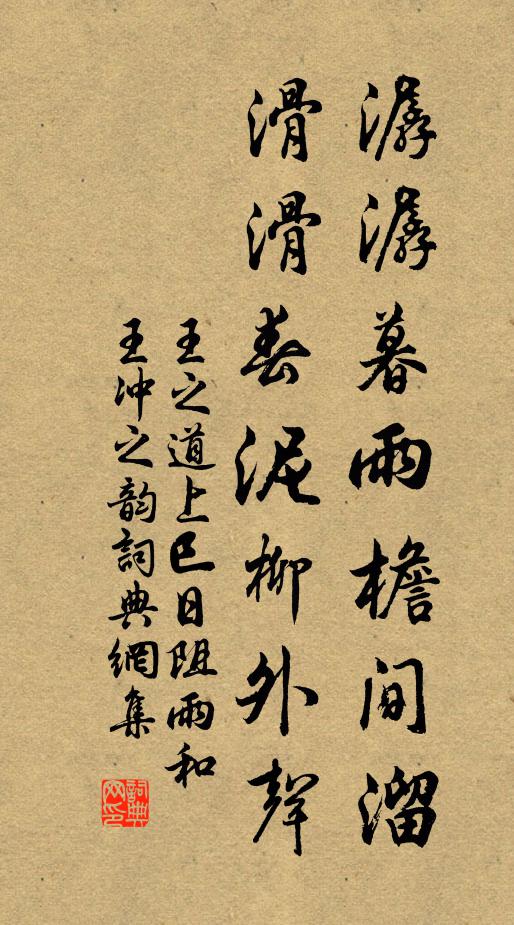 潺潺暮雨檐間溜
滑滑春泥柳外聲
王之道上巳日阻雨和
王冲之韵詞典網集
詞典网印